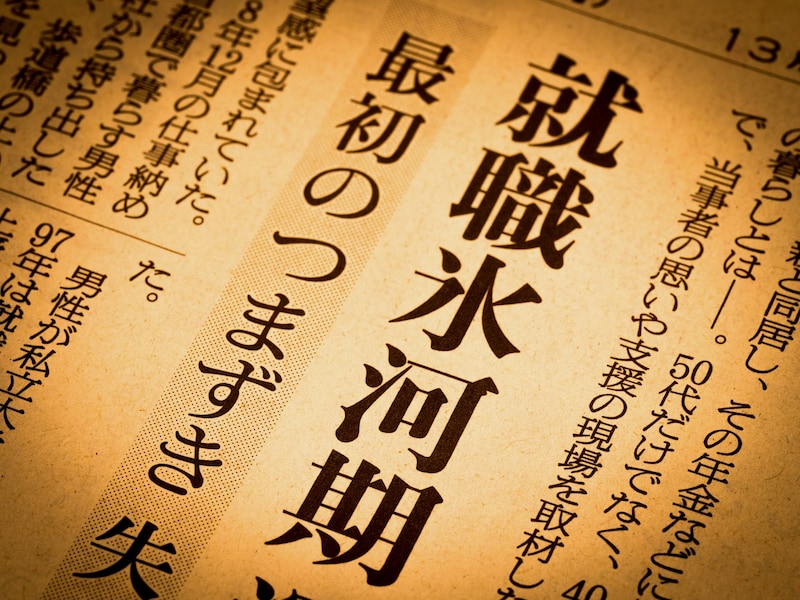 13
親と同居し、その年金などに
の暮らしとは――。50代だけでなく、40
で、当事者の思いや支援の現場を取材し
就職氷河期
最初のつまずき 失
望感に包まれていた。
8年12月の仕事納め
首都圏で暮らす男性
社から持ち出した
、歩道橋の上
を見
た。
男性が私立大
97年は就